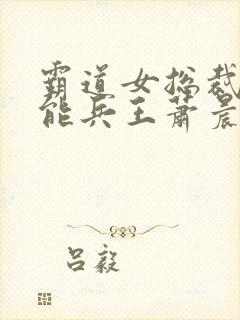 霸道女总裁
能兵王萧晨
吕毅